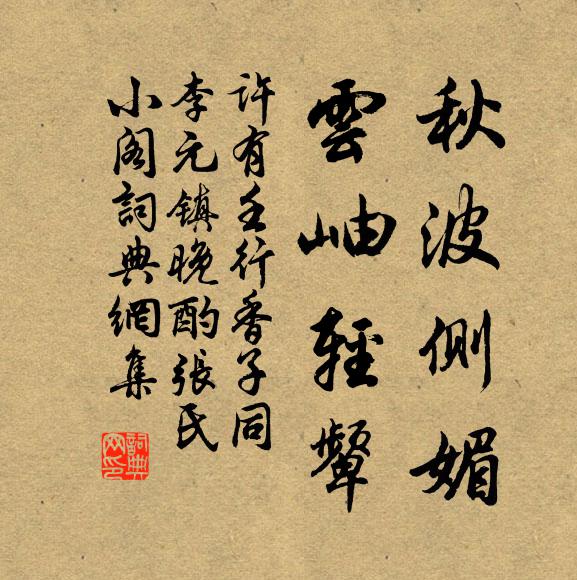 秋波側媚
雲岫輕顰
許有壬行香子同
李元鎮晚酌張氏
小阁詞典網集
詞典网印